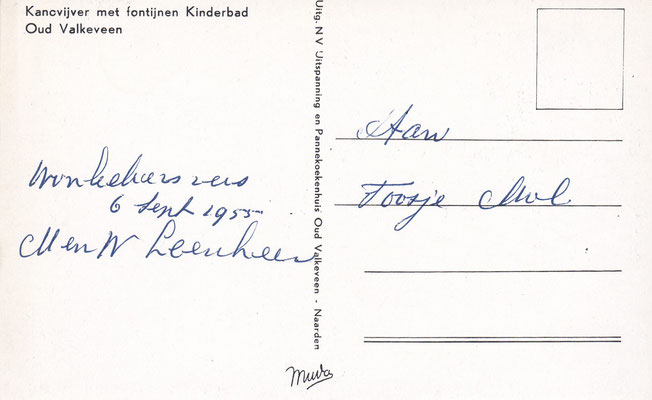 Kanovijver met fontijnen Kinderbad
Oud Valkeveen
6 Sept 1955
M en W Leenheer
Uitg. N V Uitspanning en Pannekoekenhuis Oud Valkeveen - Naarden
Aan
Toosje Mol
Muva